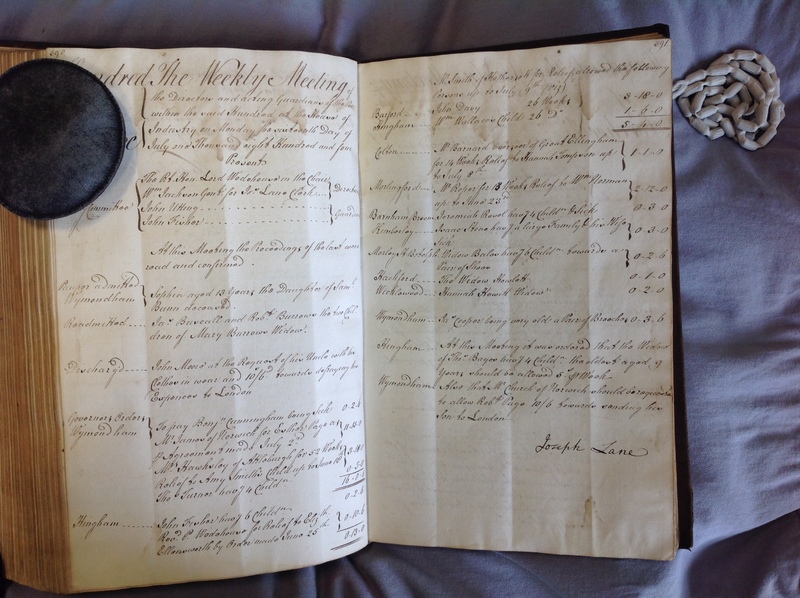 The Weekly Meeting of
the Directors and acting Guardians of the
within the said Hundred at the House of
Industry on Monday the sixteenth Day of
July one Thousand eight Hundred and four
Present
The Rt Honl Lord Wodehouse in the Chair
Wm Jackson Gent for Jos. Lane Clerk
John Uting
Committee
John Fisher
At this Meeting the Proceedings of the last were
read and confirmed
admitted
Wymondham
Sophia aged 13 Years the Daughter of Saml
Bunn
Readmitted
Jas. Buscall and Robt Burrows the two Chil
dren of Mary Burrows Widow
Dischargd
John Moore at the Request of his Uncle with his
Cloths in wear and 10/6 towards defraying his
Expences to London
Governors Orders
Wymondham
To pay Benj. Cunningham being Sick 0-2-6
Mr James of Norwich for Esther Page as
Agreement made July 2d
Mr Hawksley of Attleburgh for 52 Weeks
Relief to Amy Smith's Child up to June
Thos Turner have 4 Childn
0-2-6
Hingham
John Fisher have 6 Childn
Revd P. Wodehouse for Relief to Eliz. 0-10-6
by Order made June 25th 0-13-0
291
Mr Smith of for Relief allowed the following
Persons up to July 9th
Barford John Davy 26 Weeks 3-18-0
Hingham Wm Wallace's Child 26 Do 1-6-0
5-4-0
Colton Mr Barnard of Great Ellingham
for 14 Weeks Relief to Hannah Simpson up
to July 8th 1-1-0
Marlingford Mr Roper for 13 Weeks Relief to Wm Norman
up to 23d 2-12-0
Barnham Broom Jeremiah Revel have 4 Childn & Sick 0-3-0
Kimberley Isaac Stone have a large Family & his Wife
Sick 0-3-0
Morley St Botolph Widow Bales have 6 Childn towards a
Pair of Shoes 0-2-6
Hackford The Widow Howlett 0-1-0
Wicklewood Hannah Howett Widow 0-2-0
Wymondham Jno Cooper being very old a Pair of Breeches 0-3-6
Hingham At this Meeting it was ordered that the Widow
of Thos Bryce have 4 Childn the oldest aged 9
Years should be allowed 5s Week
Wymondham Also that Mr Church of Norwich should be requested
to allow Robt Page 10/6 towards sending his
Son to London
Joseph Lane